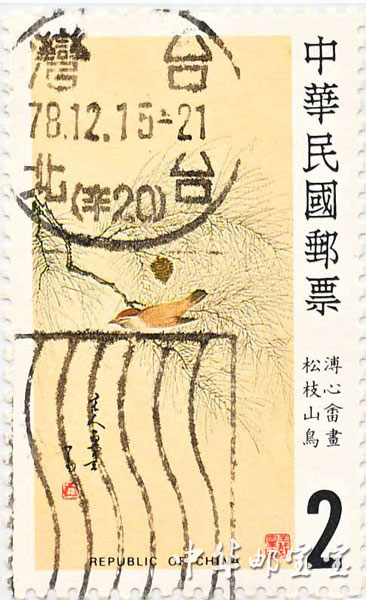 灣 台
78.12.15-21
北 台
(辛20)
中華民國郵票
溥心畬畫
松枝山鳥
REPUBLIC OF CHINA
2
中华邮宝宝